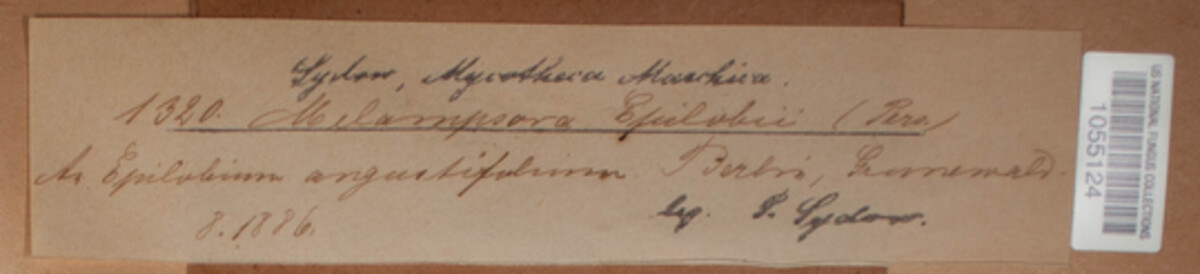 Sydow, Mycotheca Marchica.
1320. Melampsora Epilobii (Pers.)
An Epilobium angustifolium. Berlin, Grunewald.
8.1886.
leg. P. Sydow.
US NATIONAL FUNGUS COLLECTIONS
1055124